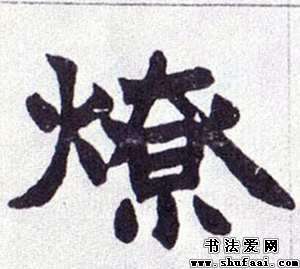 燎
书法爱网
www.shufaai.com